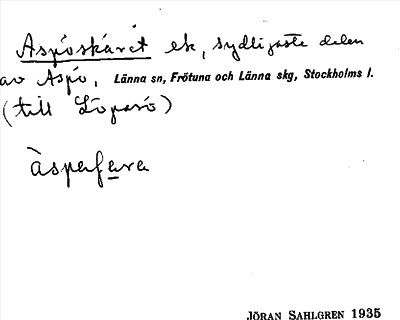 Aspöskäret ek, sydligaste delen
av Aspö, Länna sn, Frötuna och Länna skg, Stockholms l.
(till Löparö)
àspafara
JÖRAN SAHLGREN 1935